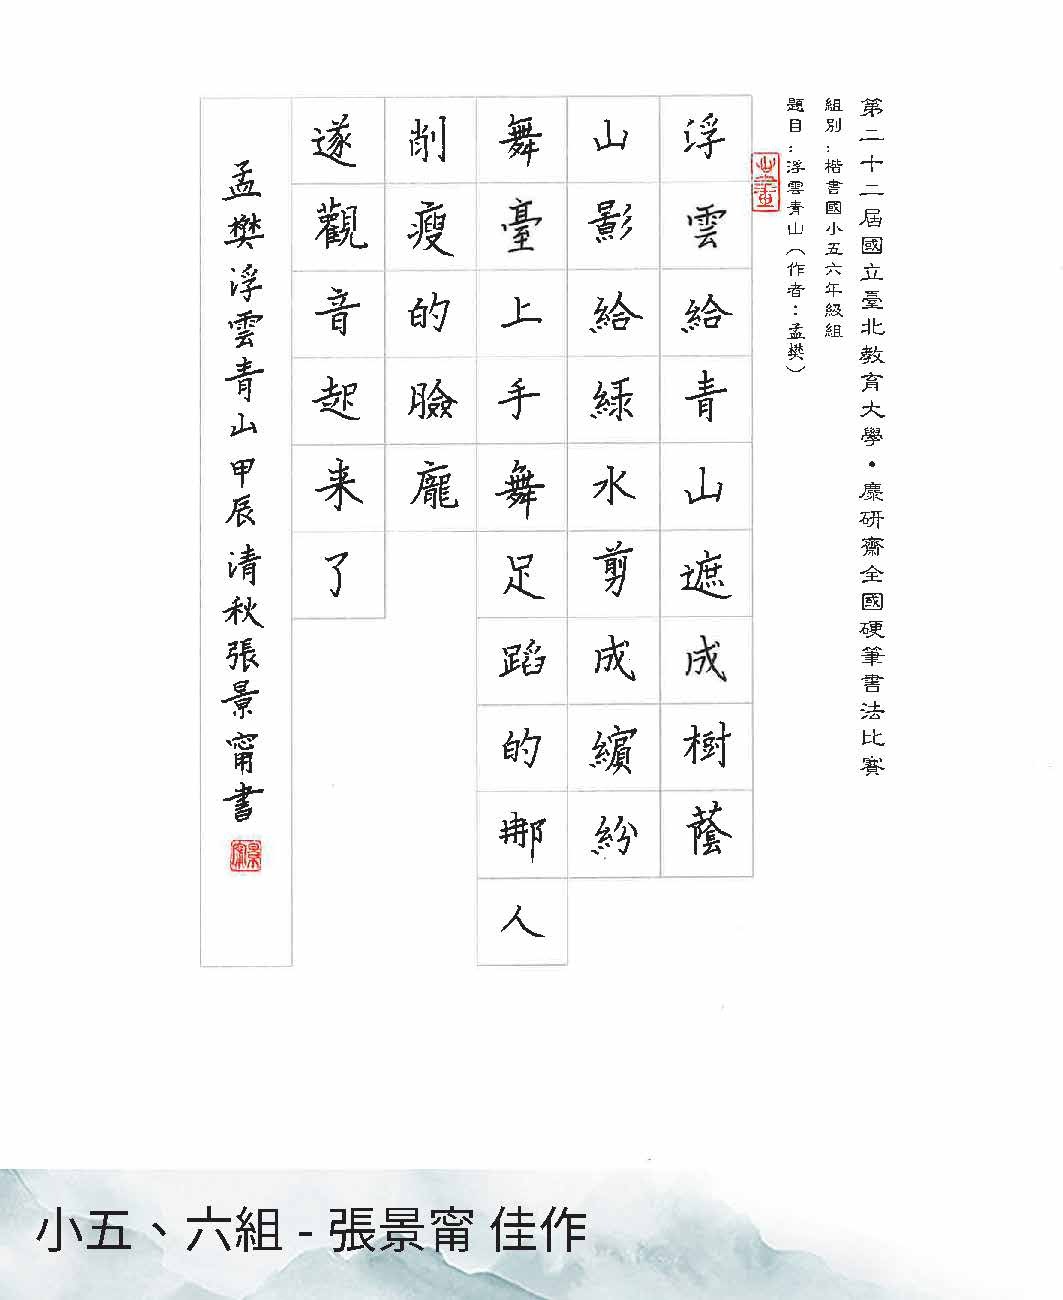 第二十二屆國立臺北教育大學・麋研齋全國硬筆書法比賽
組別：楷書國小五六年級組
題目：浮雲青山（作者：孟樊）
浮雲給青山遮成樹蔭
山影給綠水剪成繽紛
舞臺上手舞足蹈的那人
削瘦的臉龐
遂觀音起来了
孟樊浮雲青山甲辰清秋張景甯書
小五、六組 - 張景甯 佳作